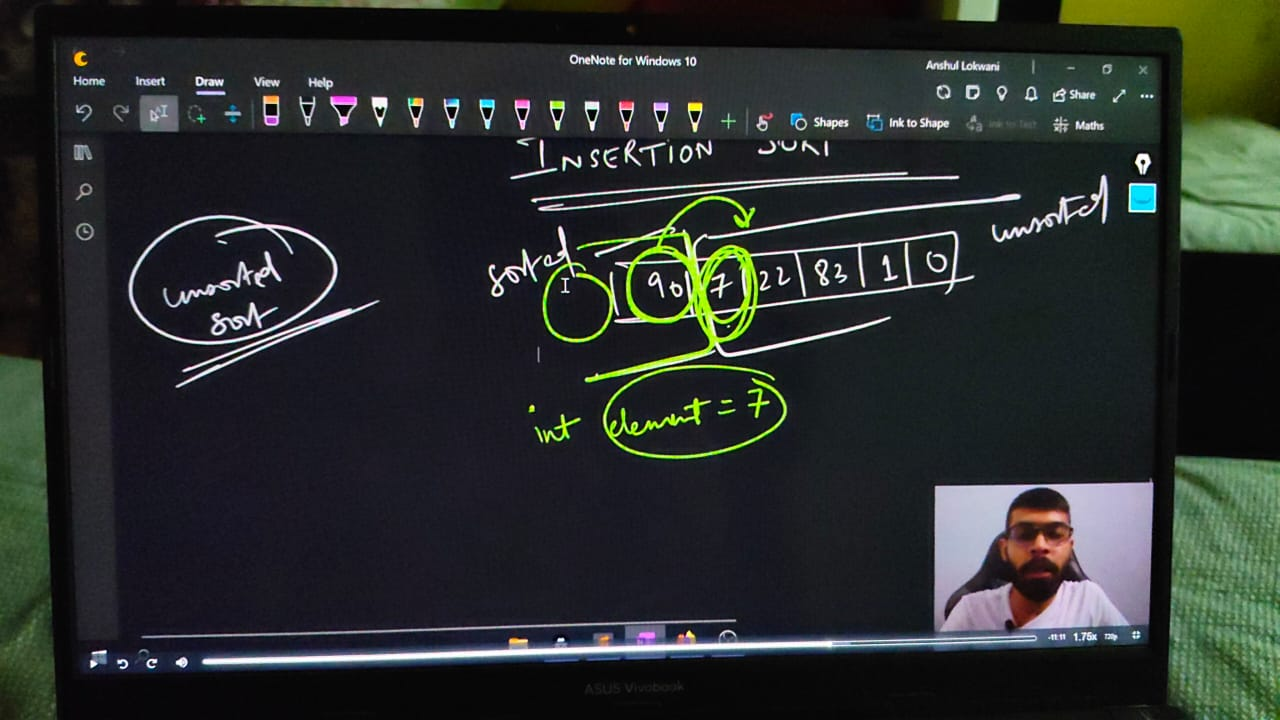 OneNote for Windows 10
Anshul Lokwani
Home Insert Draw View Help
Share
Shapes Ink to Shape Ink to Text Maths
INSERTION SORT
unsorted
sorted
90 7 22 83 1 0
unsorted
sort
int element = 7
-11:11 1.75x 720p
ASUS Vivobook